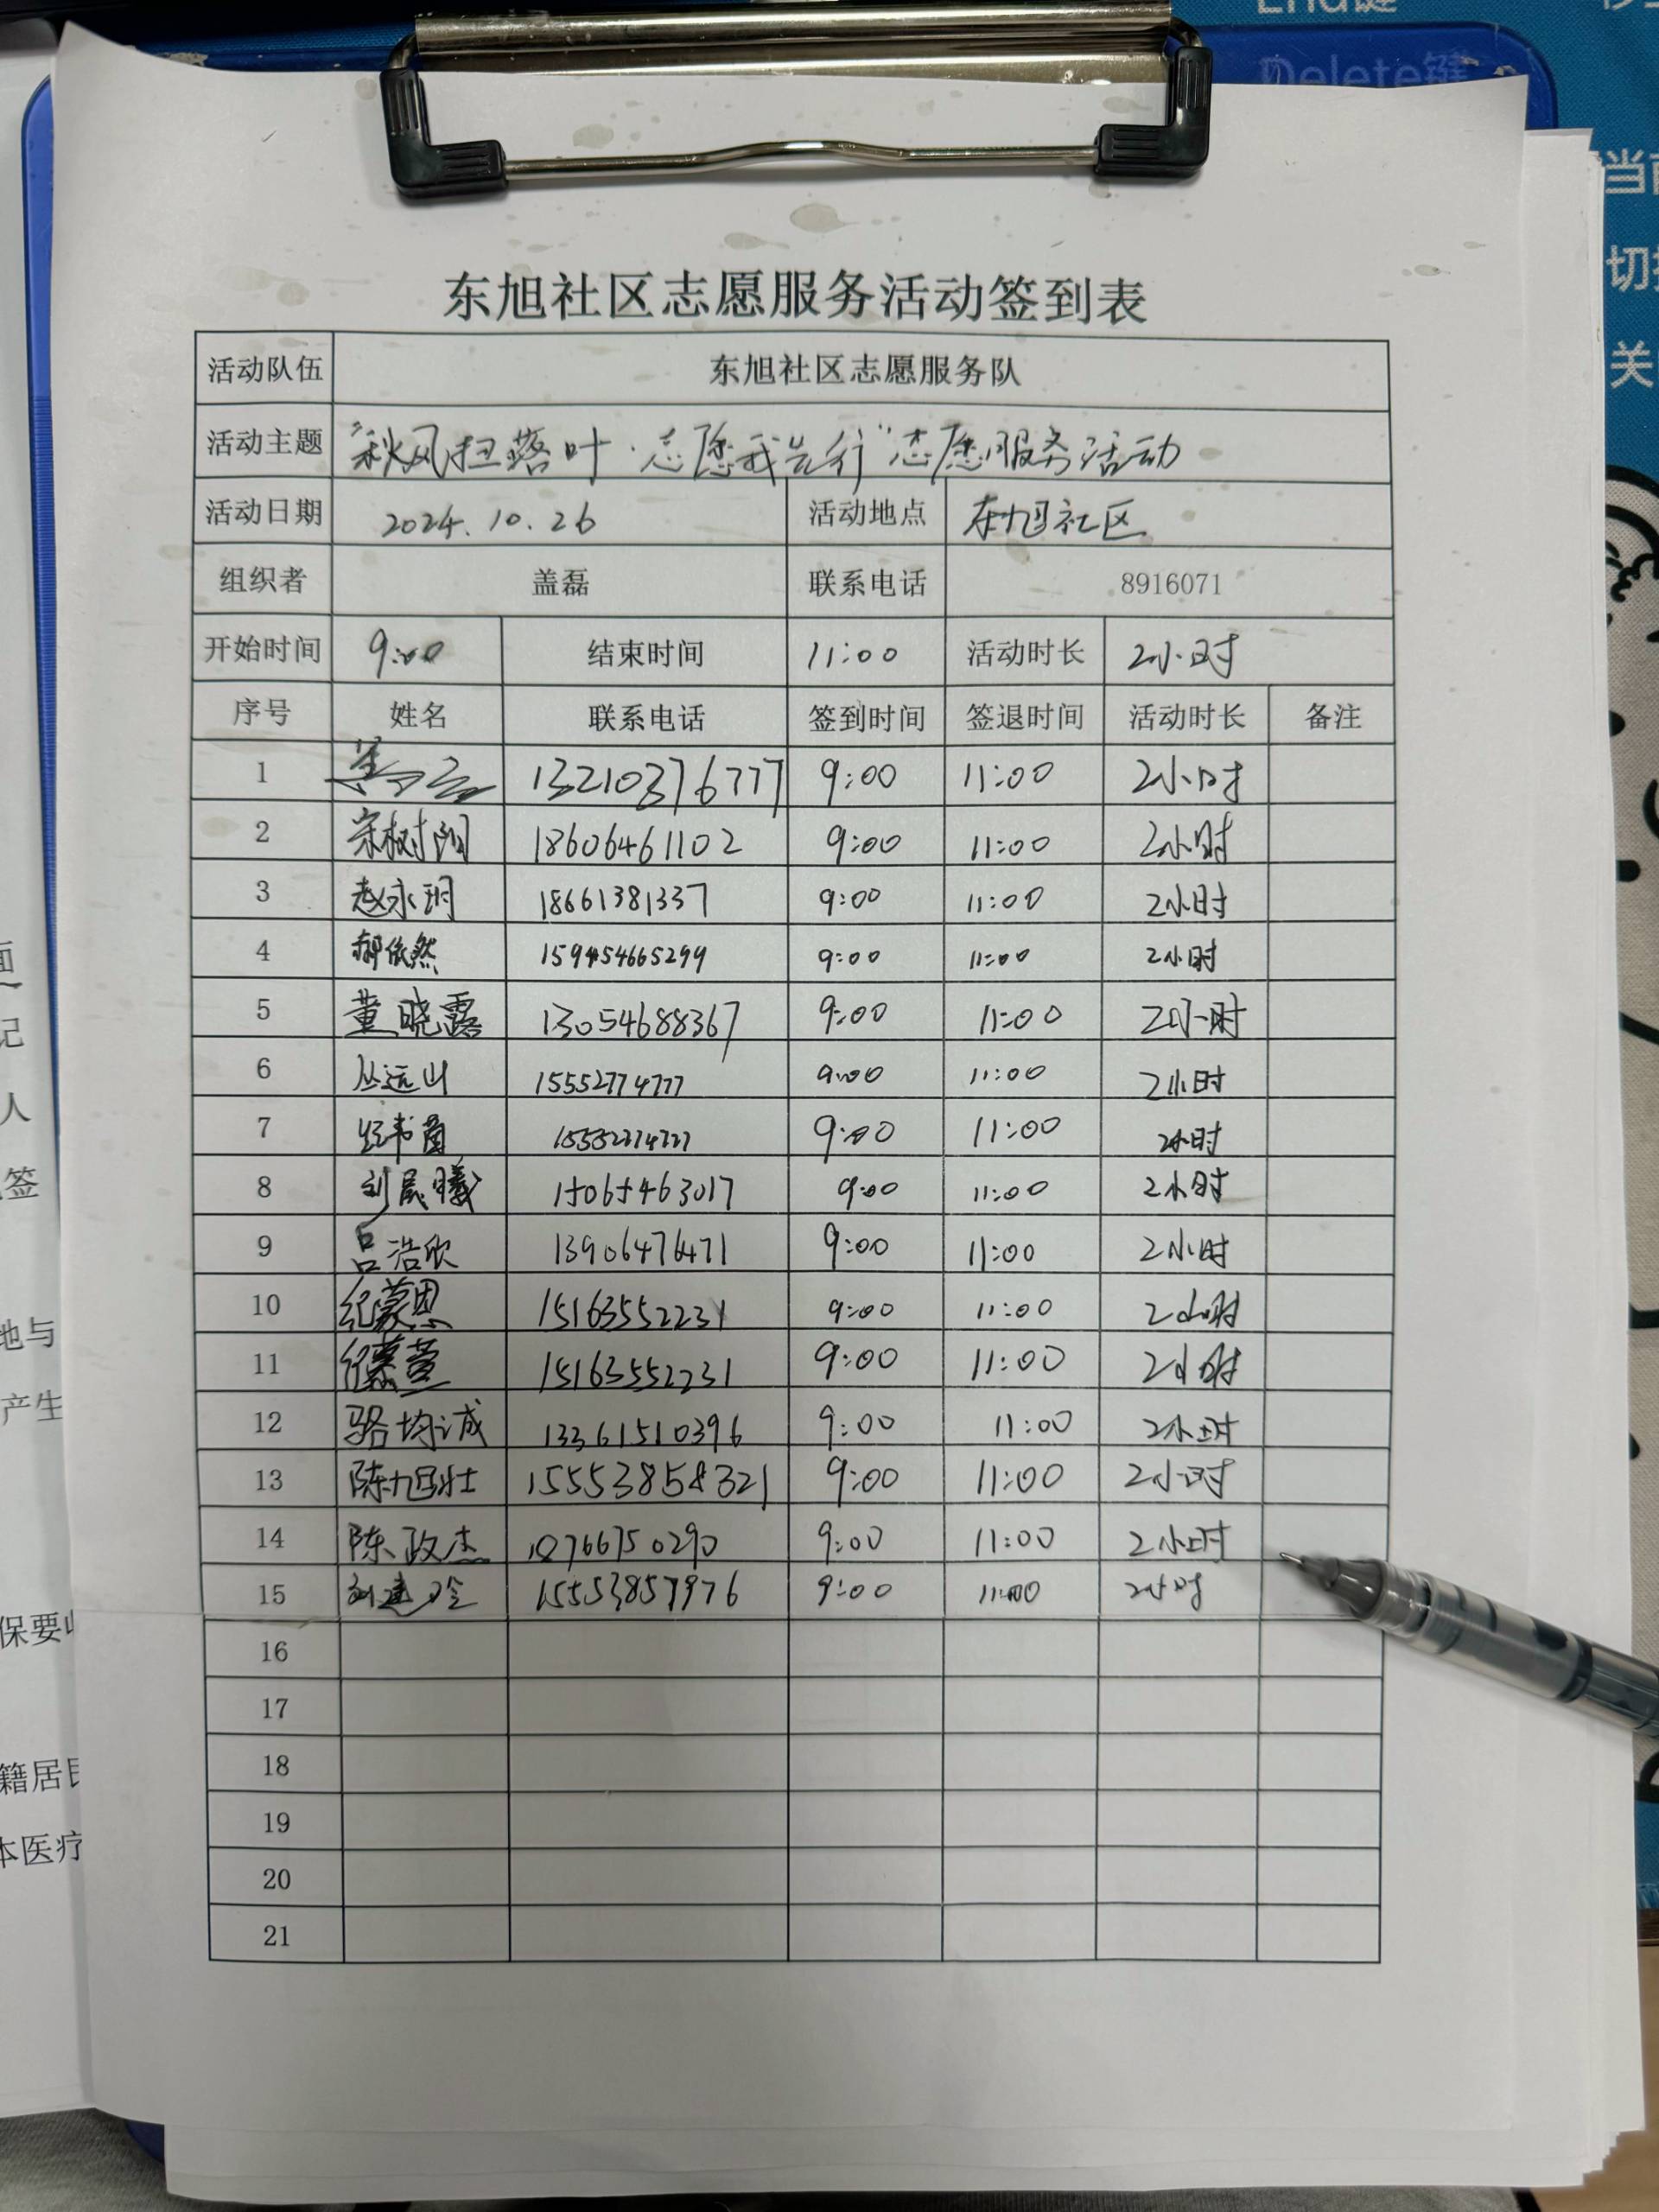 End键
Delete键
当前
切换
关
东旭社区志愿服务活动签到表
活动队伍 东旭社区志愿服务队
活动主题 "秋风扫落叶·志愿我先行"志愿服务活动
活动日期 2024.10.26 活动地点 东旭社区
组织者 盖磊 联系电话 8916071
开始时间 9:00 结束时间 11:00 活动时长 2小时
序号 姓名 联系电话 签到时间 签退时间 活动时长 备注
1 13210376777 9:00 11:00 2小时
2 宋树阳 18606461102 9:00 11:00 2小时
3 赵永玥 18661381337 9:00 11:00 2小时
4 郝依然 159454665299 9:00 11:00 2小时
5 董晓露 13054688367 9:00 11:00 2小时
6 丛远山 15552774777 9:00 11:00 2小时
7 9:00 11:00 2小时
8 刘晨曦 15065463017 9:00 11:00 2小时
9 吕浩欣 13906476471 9:00 11:00 2小时
10 纪蒙恩 15163552231 9:00 11:00 2小时
11 15163552231 9:00 11:00 2小时
12 骆均诚 13361510396 9:00 11:00 2小时
13 陈旭壮 15553858321 9:00 11:00 2小时
14 陈政杰 9:00 11:00 2小时
15 刘建玲 15553857976 9:00 11:00 2小时
16
17
18
19
20
21
面
记
人
签
地与
产生
保要
籍居
本医疗